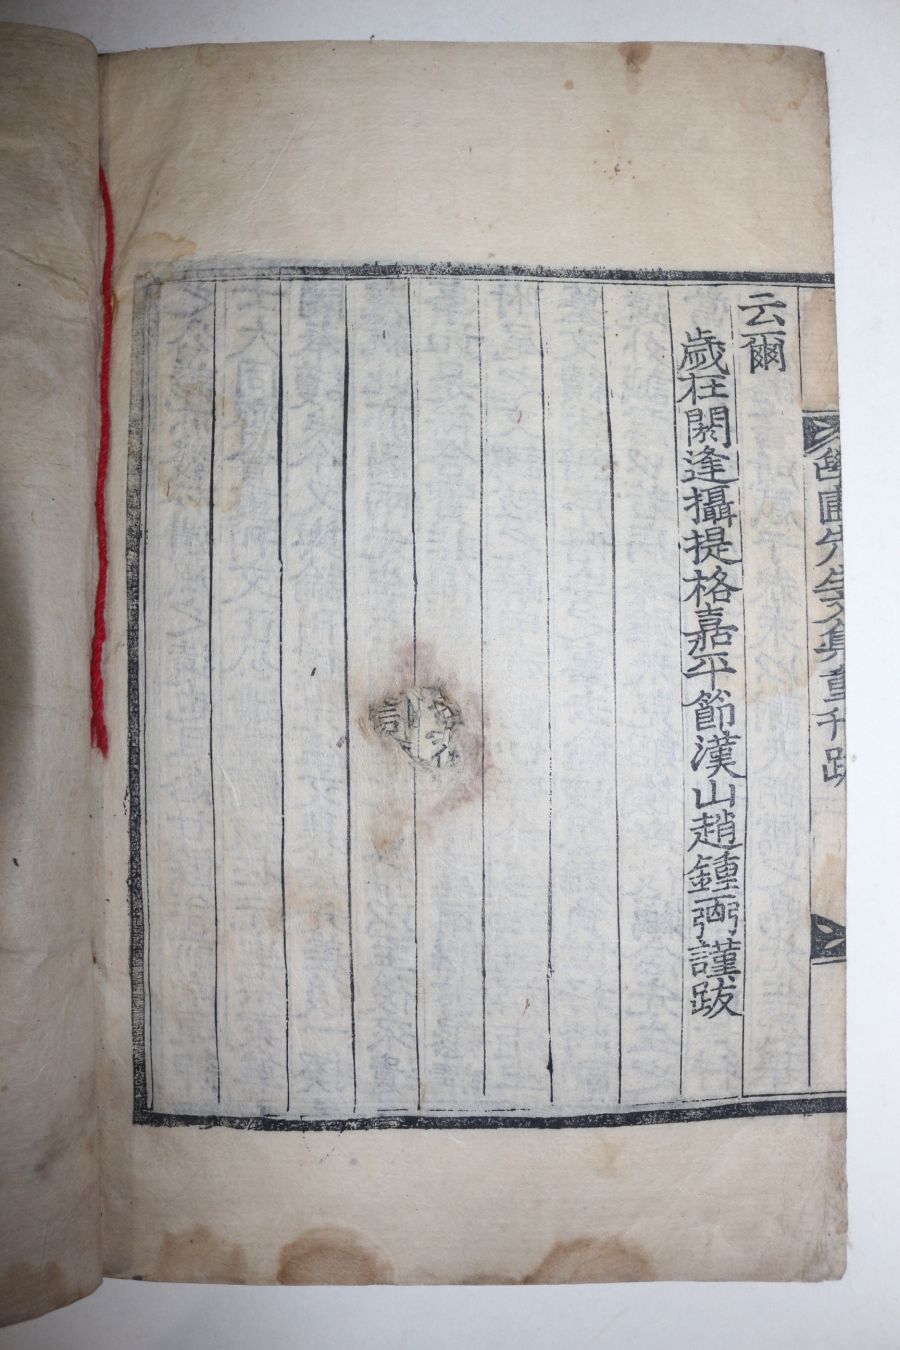 學圃先生文集重刊跋
云爾
歲在閼逢攝提格嘉平節漢山趙鍾弼謹跋